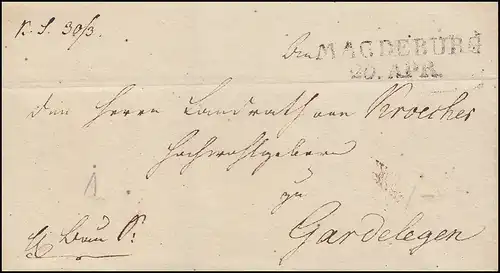 K. S. 30/3.
An MAGDEBURG
20. APR.
den Herrn Landrath von Kroecher
Hochwohlgeboren
zu
Gardelegen
1
Bau S: